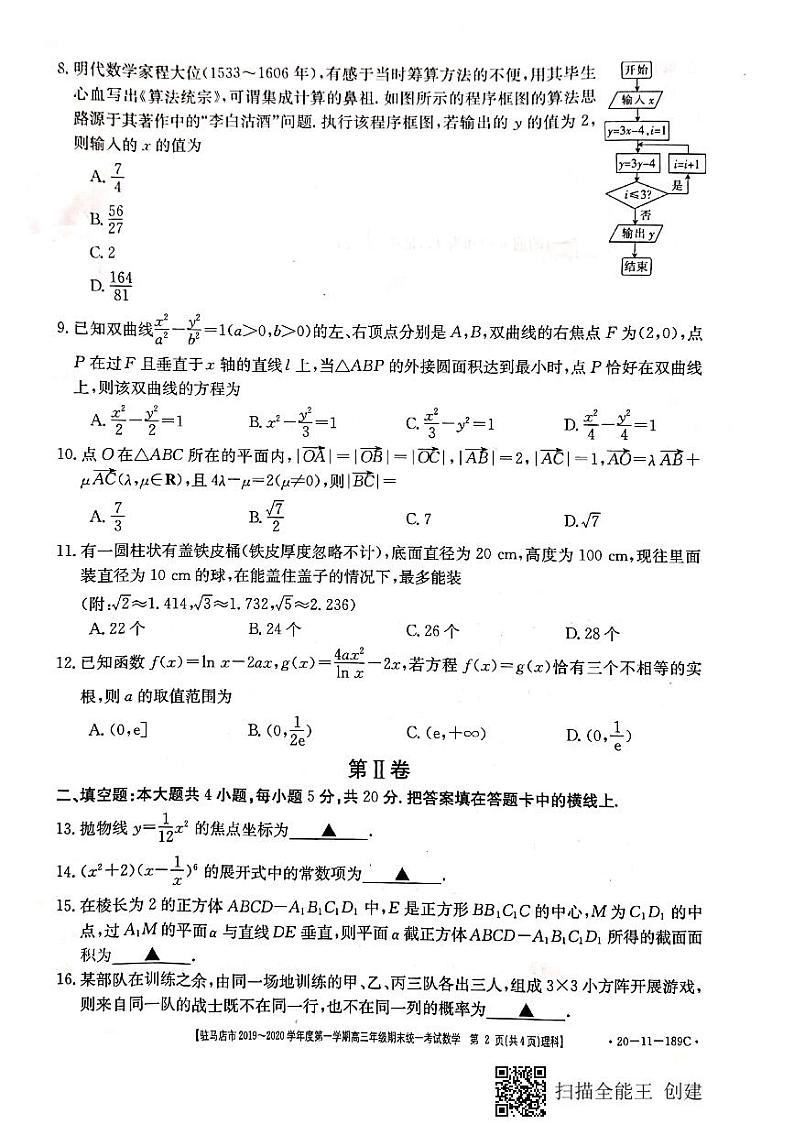 8. 明代数学家程大位(1533～1606 年),有感于当时筹算方法的不便,用其毕生
心血写出《算法统宗》,可谓集成计算的鼻祖. 如图所示的程序框图的算法思
路源于其著作中的“李白沽酒”问题. 执行该程序框图,若输出的 y 的值为 2,
则输入的 x 的值为
A. 7/4
B. 56/27
C. 2
D. 164/81
开始
输入 x
y=3x-4,i=1
y=3y-4
i=i+1
i≤3?
是
否
输出 y
结束
9. 已知双曲线 x²/a² - y²/b² =1(a>0,b>0)的左、右顶点分别是 A,B,双曲线的右焦点 F 为(2,0),点
P 在过 F 且垂直于 x 轴的直线 l 上,当△ABP 的外接圆面积达到最小时,点 P 恰好在双曲线
上,则该双曲线的方程为
A. x²/2 - y²/2 =1 B. x² - y²/3 =1 C. x²/3 - y²=1 D. x²/4 - y²/4 =1
10. 点 O 在△ABC 所在的平面内,|OA→|=|OB→|=|OC→|,|AB→|=2,|AC→|=1,AO→=λAB→+
μAC→(λ,μ∈R),且 4λ-μ=2(μ≠0),则|BC→|=
A. 7/3 B. √7/2 C. 7 D. √7
11. 有一圆柱状有盖铁皮桶(铁皮厚度忽略不计),底面直径为 20 cm,高度为 100 cm,现往里面
装直径为 10 cm 的球,在能盖住盖子的情况下,最多能装
(附:√2≈1.414,√3≈1.732,√5≈2.236)
A. 22 个 B. 24 个 C. 26 个 D. 28 个
12. 已知函数 f(x)=ln x-2ax,g(x)=4ax²/ln x -2x,若方程 f(x)=g(x)恰有三个不相等的实
根,则 a 的取值范围为
A. (0,e] B. (0,1/2e) C. (e,+∞) D. (0,1/e)
第Ⅱ卷
二、填空题:本大题共 4 小题,每小题 5 分,共 20 分. 把答案填在答题卡中的横线上.
13. 抛物线 y=1/12 x² 的焦点坐标为 ▲ .
14. (x²+2)(x-1/x)⁶ 的展开式中的常数项为 ▲ .
15. 在棱长为 2 的正方体 ABCD-A₁B₁C₁D₁ 中,E 是正方形 BB₁C₁C 的中心,M 为 C₁D₁ 的中
点,过 A₁M 的平面 α 与直线 DE 垂直,则平面 α 截正方体 ABCD-A₁B₁C₁D₁ 所得的截面面
积为 ▲ .
16. 某部队在训练之余,由同一场地训练的甲、乙、丙三队各出三人,组成 3×3 小方阵开展游戏,
则来自同一队的战士既不在同一行,也不在同一列的概率为 ▲ .
【驻马店市 2019～2020 学年度第一学期高三年级期末统一考试数学 第 2 页(共 4 页)理科】 ·20-11-189C·
扫描全能王 创建